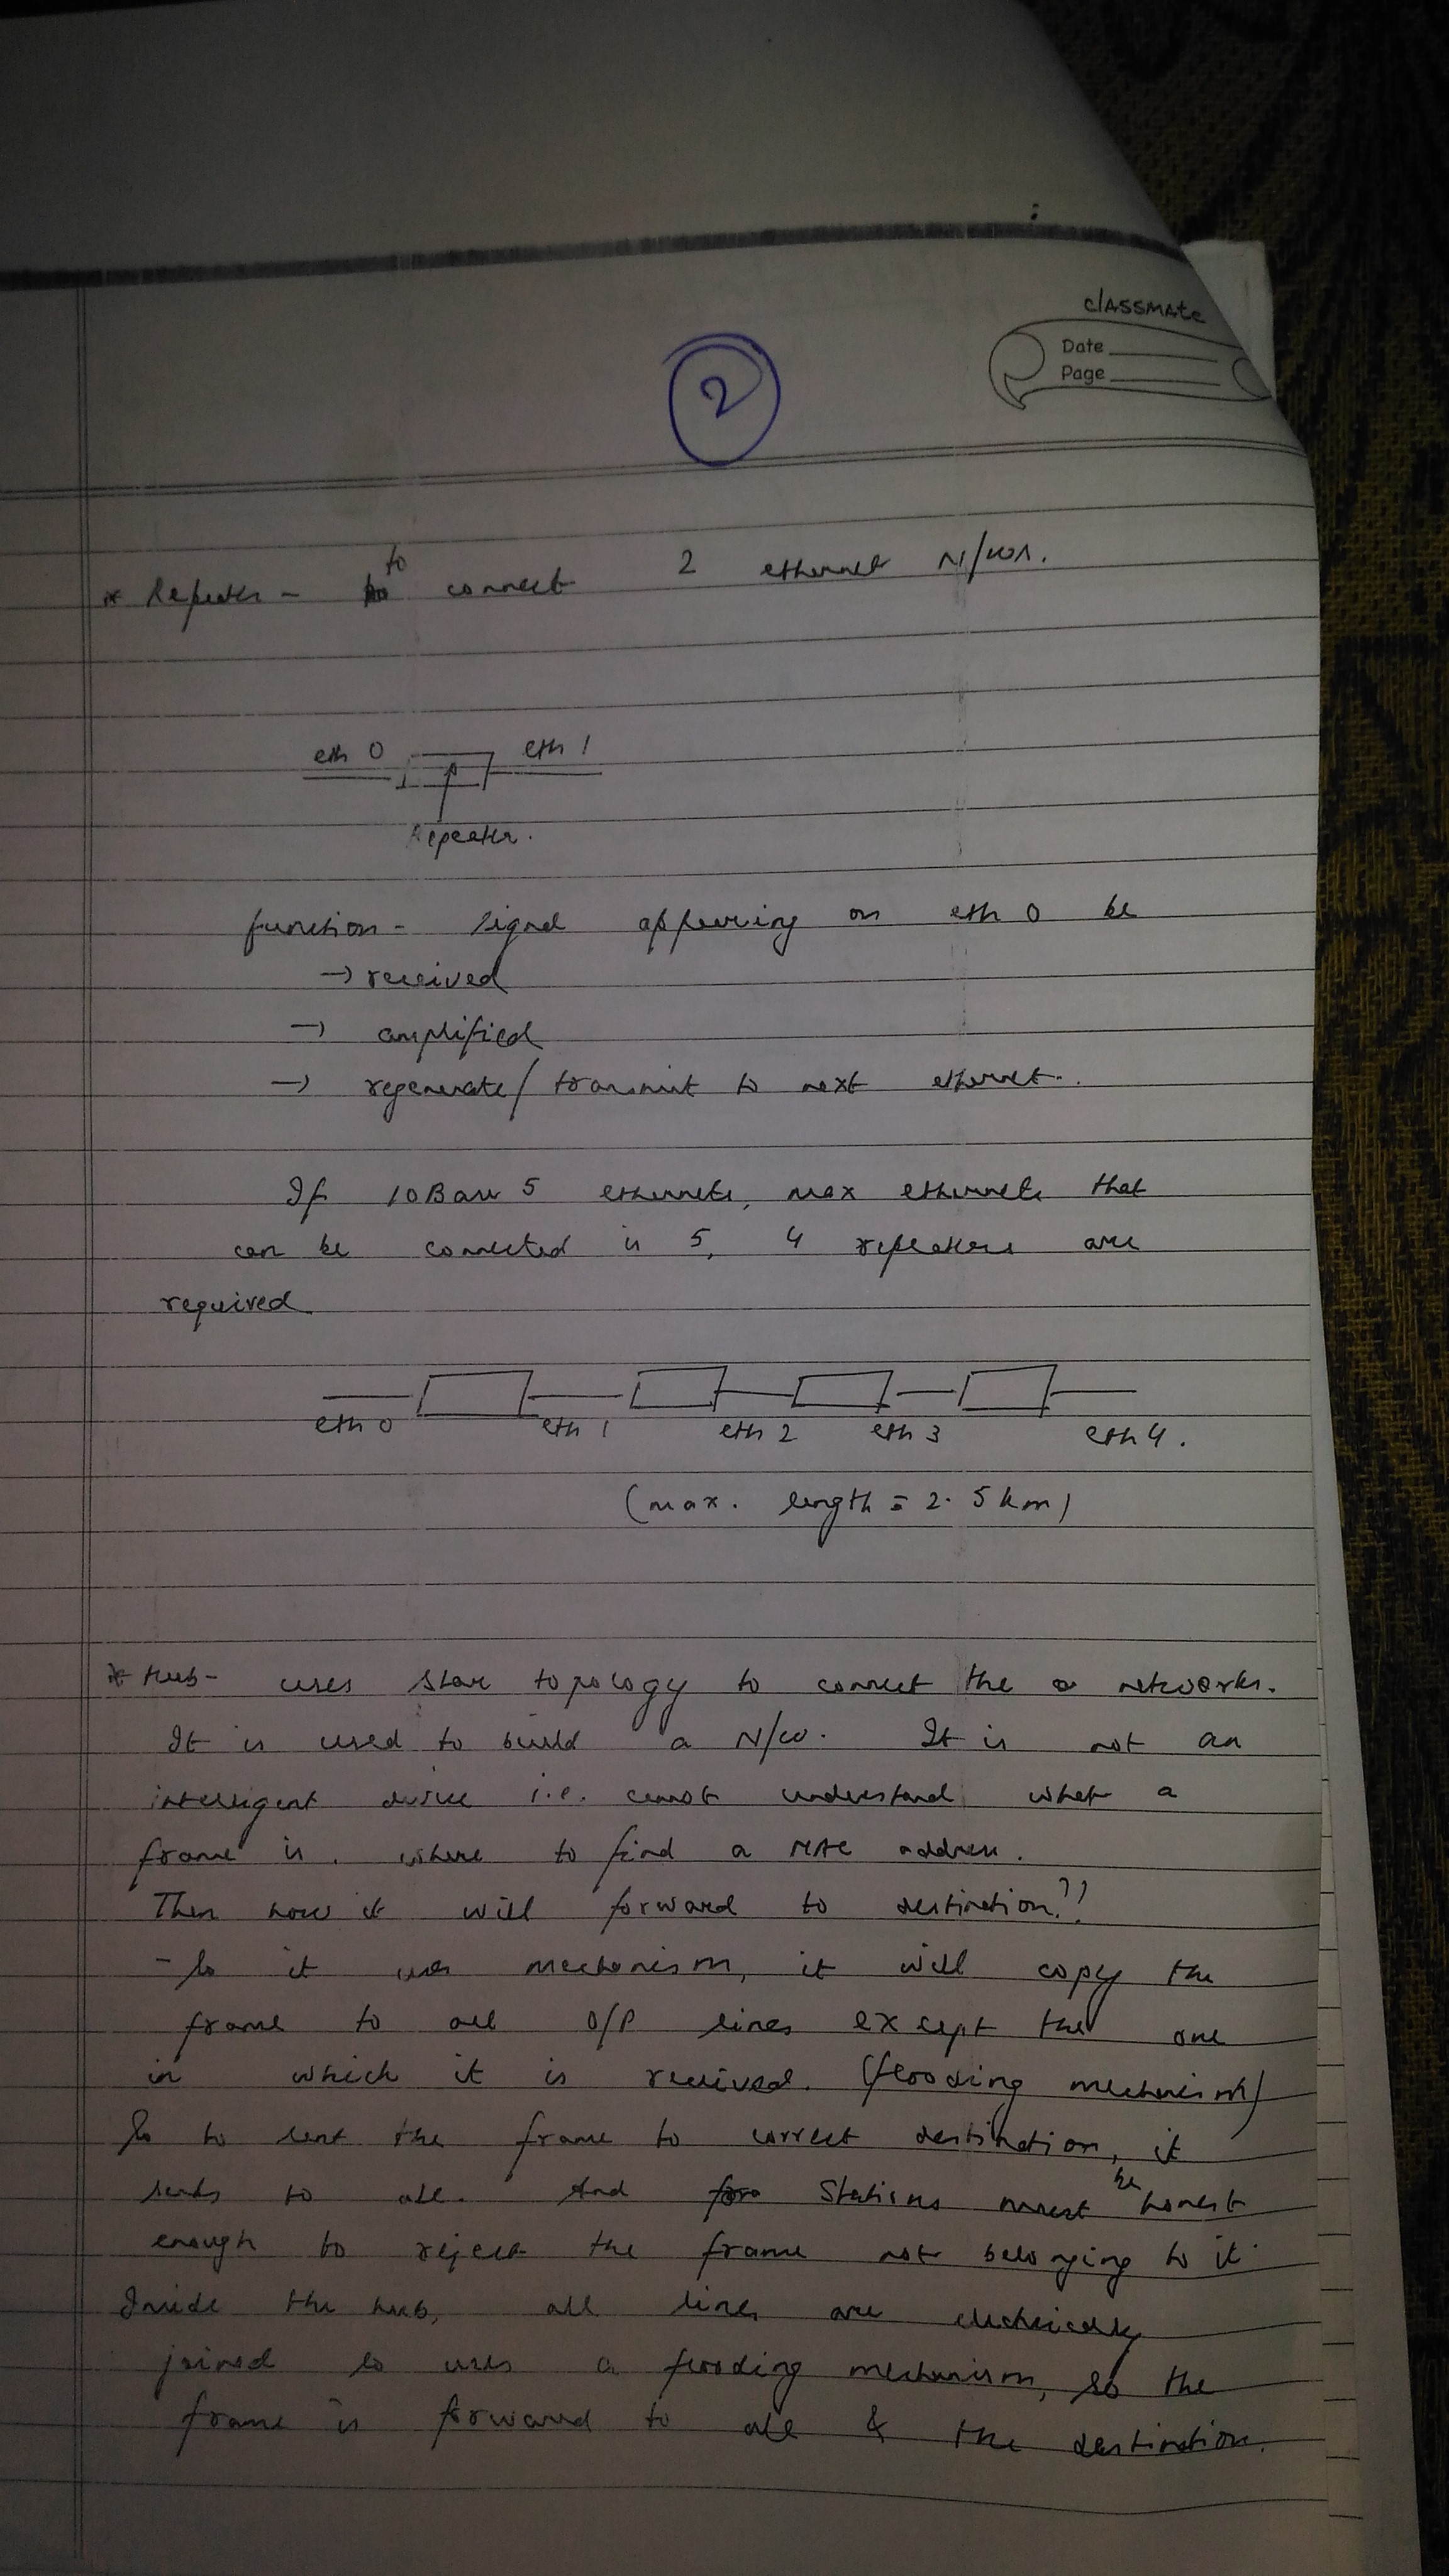 classmate
Date
Page
2
* Repeater - to connect 2 ethernet N/ws.
eth 0 eth 1
Repeater.
function - signal appearing on eth 0 be
→ received
→ amplified
→ regenerate/transmit to next ethernet.
If 10Base5 ethernets, max ethernets that
can be connected is 5, 4 repeaters are
required
eth 0 eth 1 eth 2 eth 3 eth 4.
(max. length = 2.5 km)
* Hub- uses star topology to connect the networks.
It is used to build a N/w. It is not an
intelligent device i.e. cannot understand what a
frame is, where to find a MAC address.
Then how it will forward to destination??
- So it uses mechanism, it will copy the
frame to all O/P lines except the one
in which it is received. (flooding mechanism)
So to sent the frame to correct destination, it
sends to all. And stations must be honest
enough to reject the frame not belonging to it.
Inside the hub, all lines are electrically
joined so uses a flooding mechanism, so the
frame is forward to all & the destination.